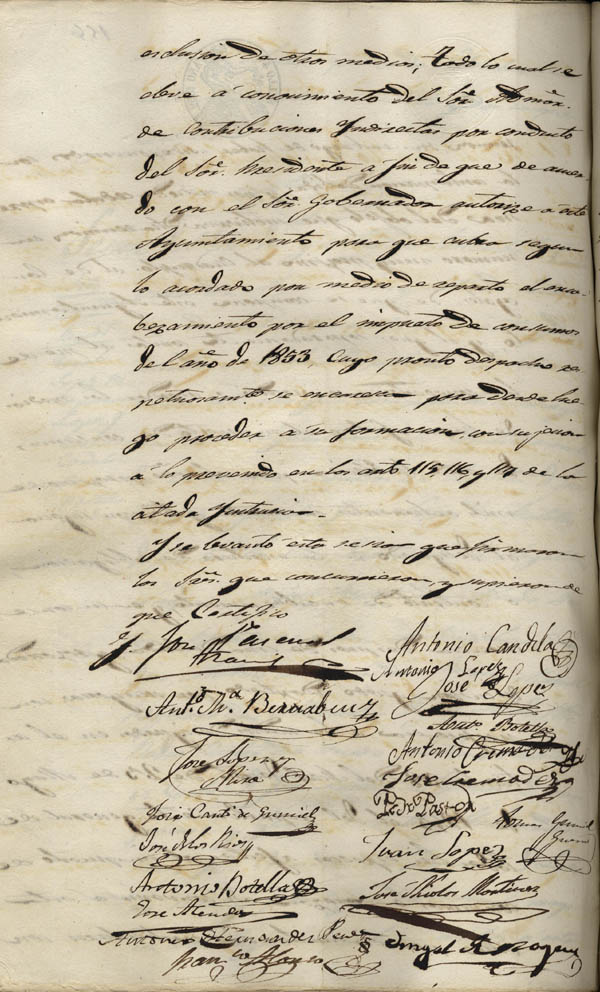 esclusion de otros medios; todo lo cual se
eleve á conocimiento del Sor. Admor.
de Contribuciones Yndirectas por conducto
del Sor. Presidente a fin de que de acuer-
do con el Sor. Gobernador autorize a este
Ayuntamiento para que cubra segun
lo acordado por medio de reparto el enca-
bezamiento por el impuesto de consumos
del año de 1853, cuyo pronto despacho res-
petuosamte. se encarece para desde lue-
go proceder a su formacion, con sujecion
a lo prevenido en los arts. 115, 116, y 117 de la
citada Ynstruccion.
Y se levantó esta sesion que firmaron
los Sres. que concurrieron, y supieron de
que Certifico
José Pascual
Antonio Candela
Antonio Lopez
José Lopez
Anto. Ma. Bernabeu
Anto. Botella
José Lopez y
Mira
Antonio
José
Pedro Pastor
José Cantó de Gumiel
José de los Rios
Juan Lopez
Antonio Botella
José Nicolas Martinez
José
Antonio Fernandez Perez
Franco. Alonso